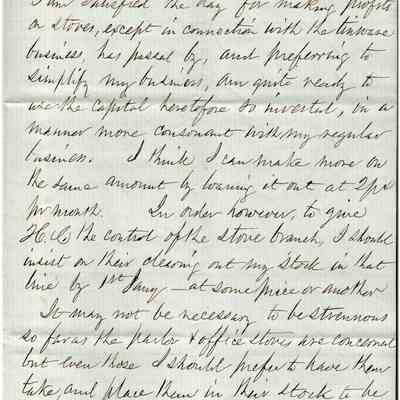 I am satisfied the day for making profits
on stoves, except in connection with the tinware
business, has passed by, and preferring to
simplify my business, am quite ready to
use the capital heretofore so invested, in a
manner more consonant with my regular
business. I think I can make more on
the same amount by loaning it out at 2 p c
pr month. In order however, to give
H. & Co the control of the stove branch, I should
insist on their closing out my stock in that
line by 1st Jany - at some price or another
It may not be necessary to be strenuous
so far as the parlor & office stoves are concerned
but even those I should prefer to have them
take and place them in their stock to be